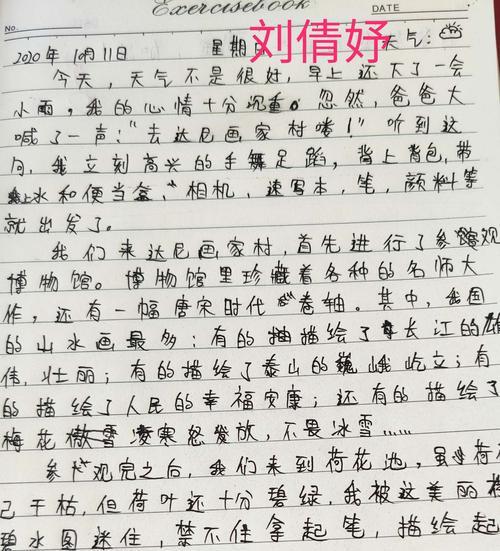 Exercisebook
NO.
DATE
刘倩妤
2020年10月11日 星期日 天气：
今天，天气不是很好，早上还大了一会
小雨，我的心情十分沉重。忽然，爸爸大
喊了一声："去达尼画家村喽！"听到这
句，我立刻高兴的手舞足蹈，背上背包，带
上水和便当盒、相机，速写本，笔，颜料等
就出发了。
我们来达尼画家村，首先进行了参观
博物馆。博物馆里珍藏着各种的名师大
作，还有一幅唐宋时代卷轴。其中，我国
的山水画最多：有的描绘了长江的雄
伟，壮丽；有的描绘了泰山的巍峨屹立；有
的描绘了人民的幸福安康；还有的描绘了
梅花凌寒怒发放，不畏冰雪……
参观完之后，我们来到荷花池，虽荷
己干枯，但荷叶还十分碧绿，我被这美丽
碧水图迷住，禁不住拿起笔，描绘起